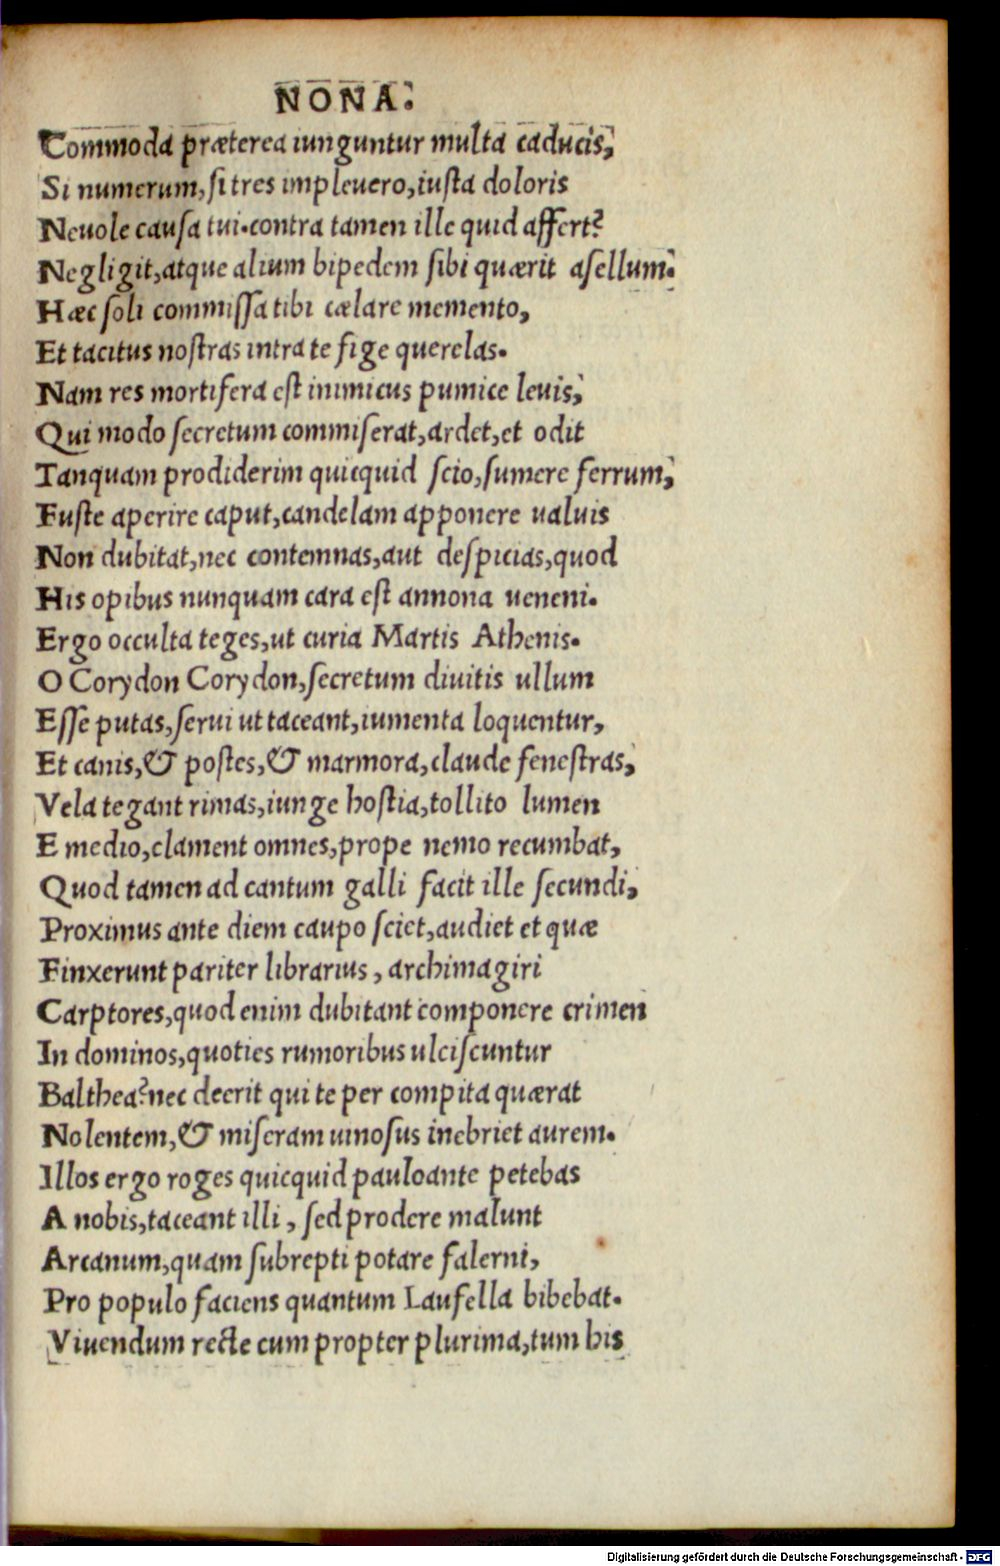 NONA.
Commoda præterea iunguntur multa caducis,
Si numerum, ſi tres impleuero, iuſta doloris
Neuole cauſa tui. contra tamen ille quid affert?
Negligit, atque alium bipedem ſibi quærit aſellum.
Hæc ſoli commiſſa tibi cælare memento,
Et tacitus noſtras intra te fige querelas.
Nam res mortifera eſt inimicus pumice leuis,
Qui modo ſecretum commiſerat, ardet, et odit
Tanquam prodiderim quicquid ſcio, ſumere ferrum,
Fuſte aperire caput, candelam apponere ualuis
Non dubitat, nec contemnas, aut deſpicias, quod
His opibus nunquam cara eſt annona ueneni.
Ergo occulta teges, ut curia Martis Athenis.
O Corydon Corydon, ſecretum diuitis ullum
Eſſe putas, ſerui ut taceant, iumenta loquentur,
Et canis, & postes, & marmora, claude feneſtras,
Vela tegant rimas, iunge hoſtia, tollito lumen
E medio, clament omnes, prope nemo recumbat,
Quod tamen ad cantum galli facit ille ſecundi,
Proximus ante diem caupo ſciet, audiet et quæ
Finxerunt pariter librarius, archimagiri
Carptores, quod enim dubitant componere crimen
In dominos, quoties rumoribus ulciſcuntur
Balthea? nec deerit qui te per compita quærat
Nolentem, & miſeram uinoſus inebriet aurem.
Illos ergo roges quicquid pauloante petebas
A nobis, taceant illi, ſed prodere malunt
Arcanum, quam ſubrepti potare falerni,
Pro populo faciens quantum Laufella bibebat.
Viuendum recte cum propter plurima, tum his
Digitalisierung gefördert durch die Deutsche Forschungsgemeinschaft - DFG